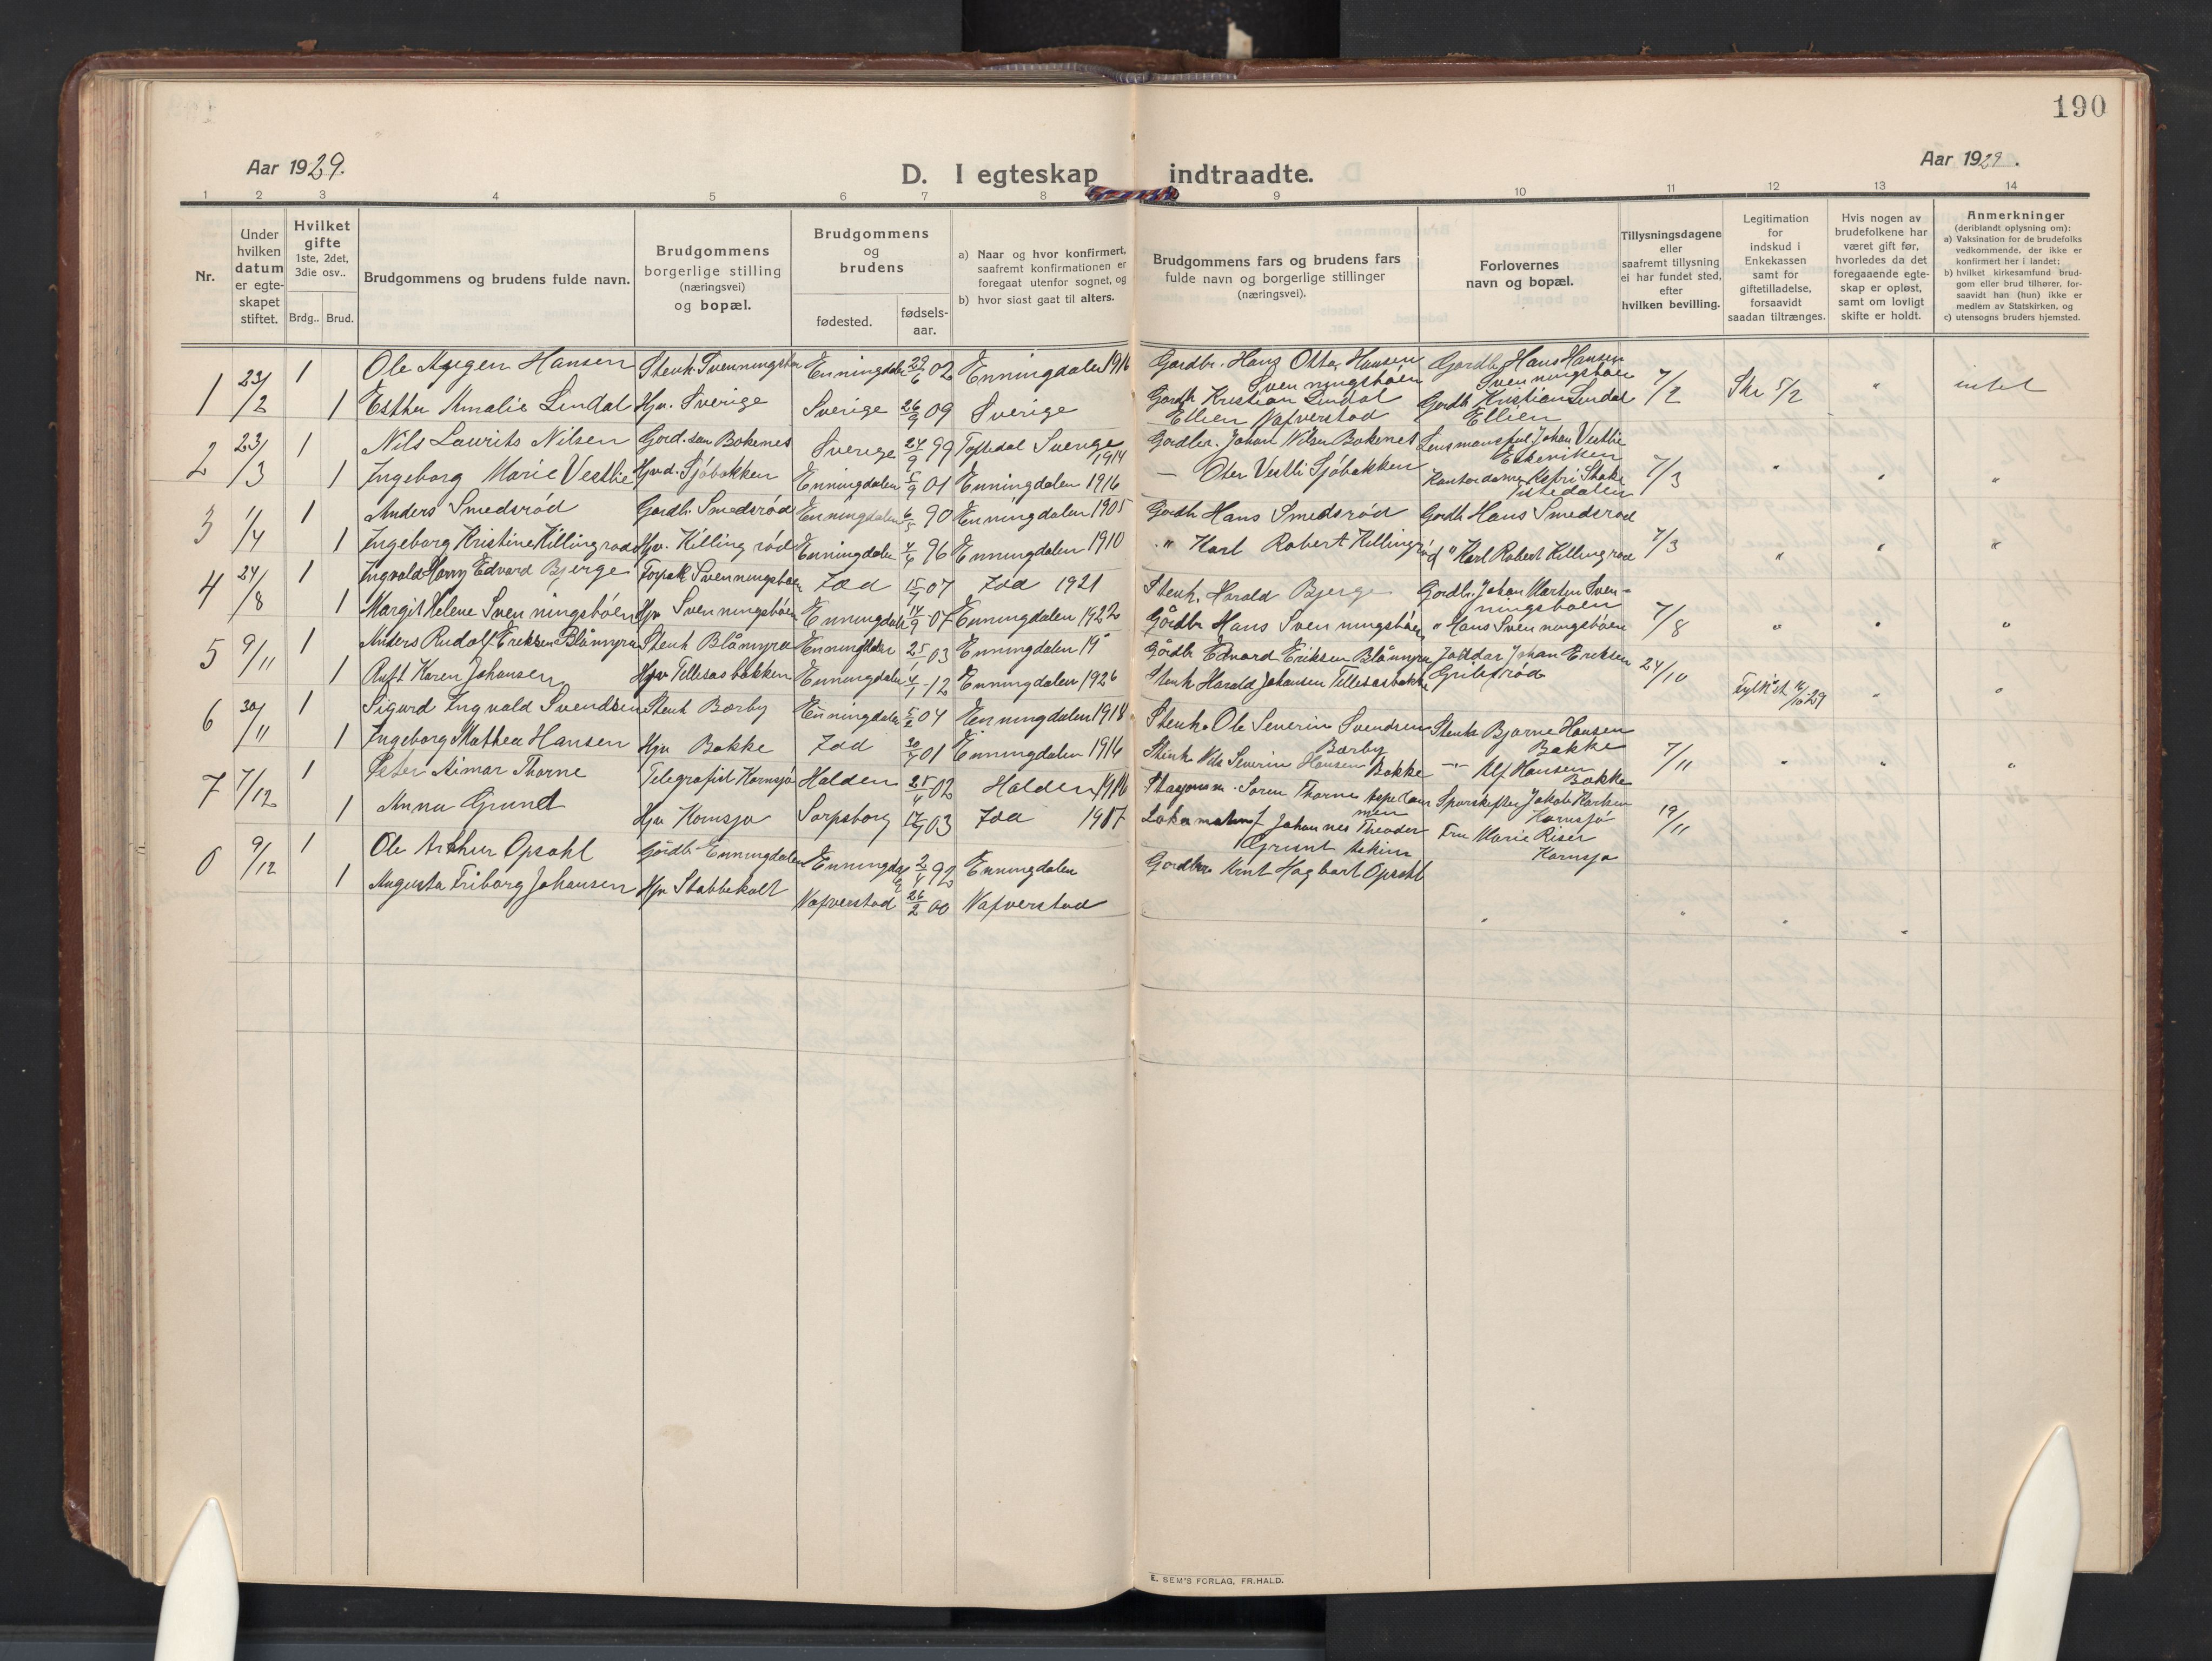 190
Aar 1929.
D. I egteskap indtraadte.
Aar 1929.
1 2 3 4 5 6 7 8 9 10 11 12 13 14
Nr.
Under hvilken datum er egte- skapet stiftet.
Hvilket gifte 1ste, 2det, 3die osv..
Brdg.. Brud.
Brudgommens og brudens fulde navn.
Brudgommens borgerlige stilling (næringsvei) og bopæl.
Brudgommens og brudens
fødested.
fødsels- aar.
a) Naar og hvor konfirmert, saafremt konfirmationen er foregaat utenfor sognet, og
b) hvor sidst gaat til alters.
Brudgommens fars og brudens fars fulde navn og borgerlige stillinger (næringsvei).
Forlovernes navn og bopæl.
Tillysningsdagene eller saafremt tillysning ei har fundet sted, efter hvilken bevilling.
Legitimation for indskud i Enkekassen samt for giftetilladelse, forsaavidt saadan tiltrænges.
Hvis nogen av brudefolkene har været gift før, hvorledes da det foregaaende egte- skap er opløst, samt om lovligt skifte er holdt.
Anmerkninger (deriblandt oplysning om):
a) Vaksination for de brudefolks vedkommende, der ikke er konfirmert her i landet;
b) hvilket kirkesamfund brud- gom eller brud tilhører, for- saavidt han (hun) ikke er medlem av Statskirken, og
c) utensogns bruders hjemsted.
1 23/2 1 Ole Hansen Stenh. Enningdalen 02 Enningdalen 1916 Gaardbr. Hans Otto Hansen Gaardb. Hans Hansen
Svenningsbøen Svenningsbøen 7/2 5/2 " intet
1 Esther Amalie Lindal Hjv. Sverige Sverige 26/9 09 Sverige Gaardb Kristian Lindal Gaardb. Kristian Lindal
Ellien Nafverstad Ellien
2 23/3 1 Nils Laurits Nilsen Bokenes Sverige 24/9 99 Sverige 1914 Gaardbr. Johan Nilsen Bokenes Johan Vestlie
1 Ingeborg Marie Vestlie Sjöbakken Enningdalen 5/9 01 Enningdalen 1916 — Vestli Sjöbakken 7/3 " " "
Tistedalen
3 1/4 1 Anders Smedsrød Gaardb. Smedsrød Enningdalen 6/5 90 Enningdalen 1905 Gaardb Hans Smedsrød Gaardb Hans Smedsrød
1 Ingeborg Kristine Killingrød Hjv. Killingrød Enningdalen 4/6 96 Enningdalen 1910 " Karl Robert Killingrød " Karl Robert Killingrød 7/3 " " "
4 24/8 1 Ingvald Harry Edvard Bjerge Svenningsbøen Idd 07 Idd 1921 Stenh. Harald Bjerge Gaardbr. Johan Martin Sven-
ningsbøen
1 Margit Helene Svenningsbøen Hjv Svenningsbøen Enningdalen 14/9 07 Enningdalen 1922 Gårdbr Hans Svenningsbøen " Hans Svenningsbøen 7/8 " " "
5 9/11 1 Anders Rudolf Eriksen Blåmyra Stenh Blåmyra Enningdalen 25/1 03 Enningdalen 19" Gårdbr Edvard Eriksen Blåmyra Johan Eriksen
1 Karen Johansen Hjv Tellesasbakken Enningdalen 4/1 12 Enningdalen 1926 Stenh Harald Johansen Tellesasbakke 24/10 16/10-29 " "
6 30/11 1 Sigurd Ingvald Svendsen Stenh Bærby Enningdalen 04 Enningdalen 1918 Stenh. Ole Severin Svendsen Stenh Bjarne Hansen
Bærby Bakke
1 Ingeborg Mathea Hansen Hjv Bakke Idd 01 Enningdalen 1916 Stenh Nils Severin Hansen Bakke —"— Alf Hansen 7/11 " " "
Bakke
7 7/12 1 Peter Thorne Telegrafist Kornsjø Halden 25/4 02 Halden 1916 Søren Thorne Jakob Karlsen
Kornsjø
1 Anna Grundt Hjv Kornsjø Sarpsborg 03 Idd 1917 Johannes Theodor Fru Marie Riser 19/11
Kornsjø
9/12 1 Ole Arthur Opsahl Gårdb. Enningdalen Enningdal 92 Enningdalen Gaardbr Hagbart Opsahl
1 Augusta Friborg Johansen Hjv Stabbekolt Nafverstad 26/2 00 Nafverstad " " "
E. SEM'S FORLAG, FR.HALD.